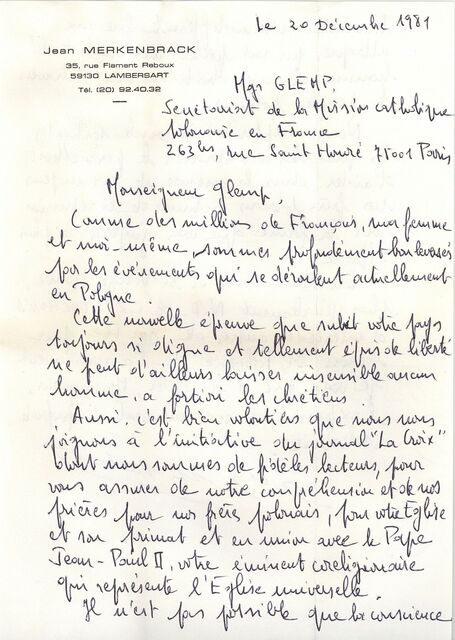 Le 20 Décembre 1981
Jean MERKENBRACK
35, rue Flament Reboux
59130 LAMBERSART
Tél. (20) 92.40.32
Mgr GLEMP,
Secrétariat de la Mission catholique
polonaise en France
263 bis, rue Saint Honoré 75001 Paris
Monseigneur Glemp,
Comme des millions de Français, ma femme
et moi-même, sommes profondément bouleversés
par les événements qui se déroulent actuellement
en Pologne.
Cette nouvelle épreuve que subit votre pays
toujours si digne et tellement épris de liberté
ne peut d'ailleurs laisser insensible aucun
homme, a fortiori les chrétiens.
Aussi, c'est bien volontiers que nous nous
joignons à l'initiative du journal "La Croix"
dont nous sommes de fidèles lecteurs, pour
vous assurer de notre compréhension et de nos
prières pour nos frères polonais, pour votre Eglise
et son primat et en union avec le Pape
Jean-Paul II, votre éminent coreligionaire
qui représente l'Eglise universelle.
Il n'est pas possible que la conscience